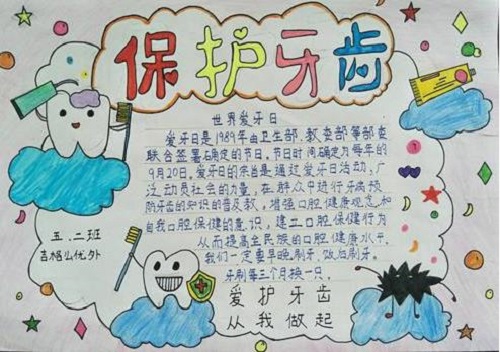 保护牙齿
世界爱牙日
爱牙日是1989年由卫生部、教委部等部委
联合签署确定的节日,节日时间确定为每年的
9月20日。爱牙日的宗旨是通过爱牙日活动,广
泛动员社会的力量,在群众中进行牙病预
防牙齿的知识的普及教,增强口腔健康观念和
自我口腔保健的意识,建立口腔保健行为
从而提高全民族的口腔健康水平.
我们一定要早晚刷牙、饭后刷牙。
牙刷每三个月换一只.
五、二班
爱护牙齿
从我做起